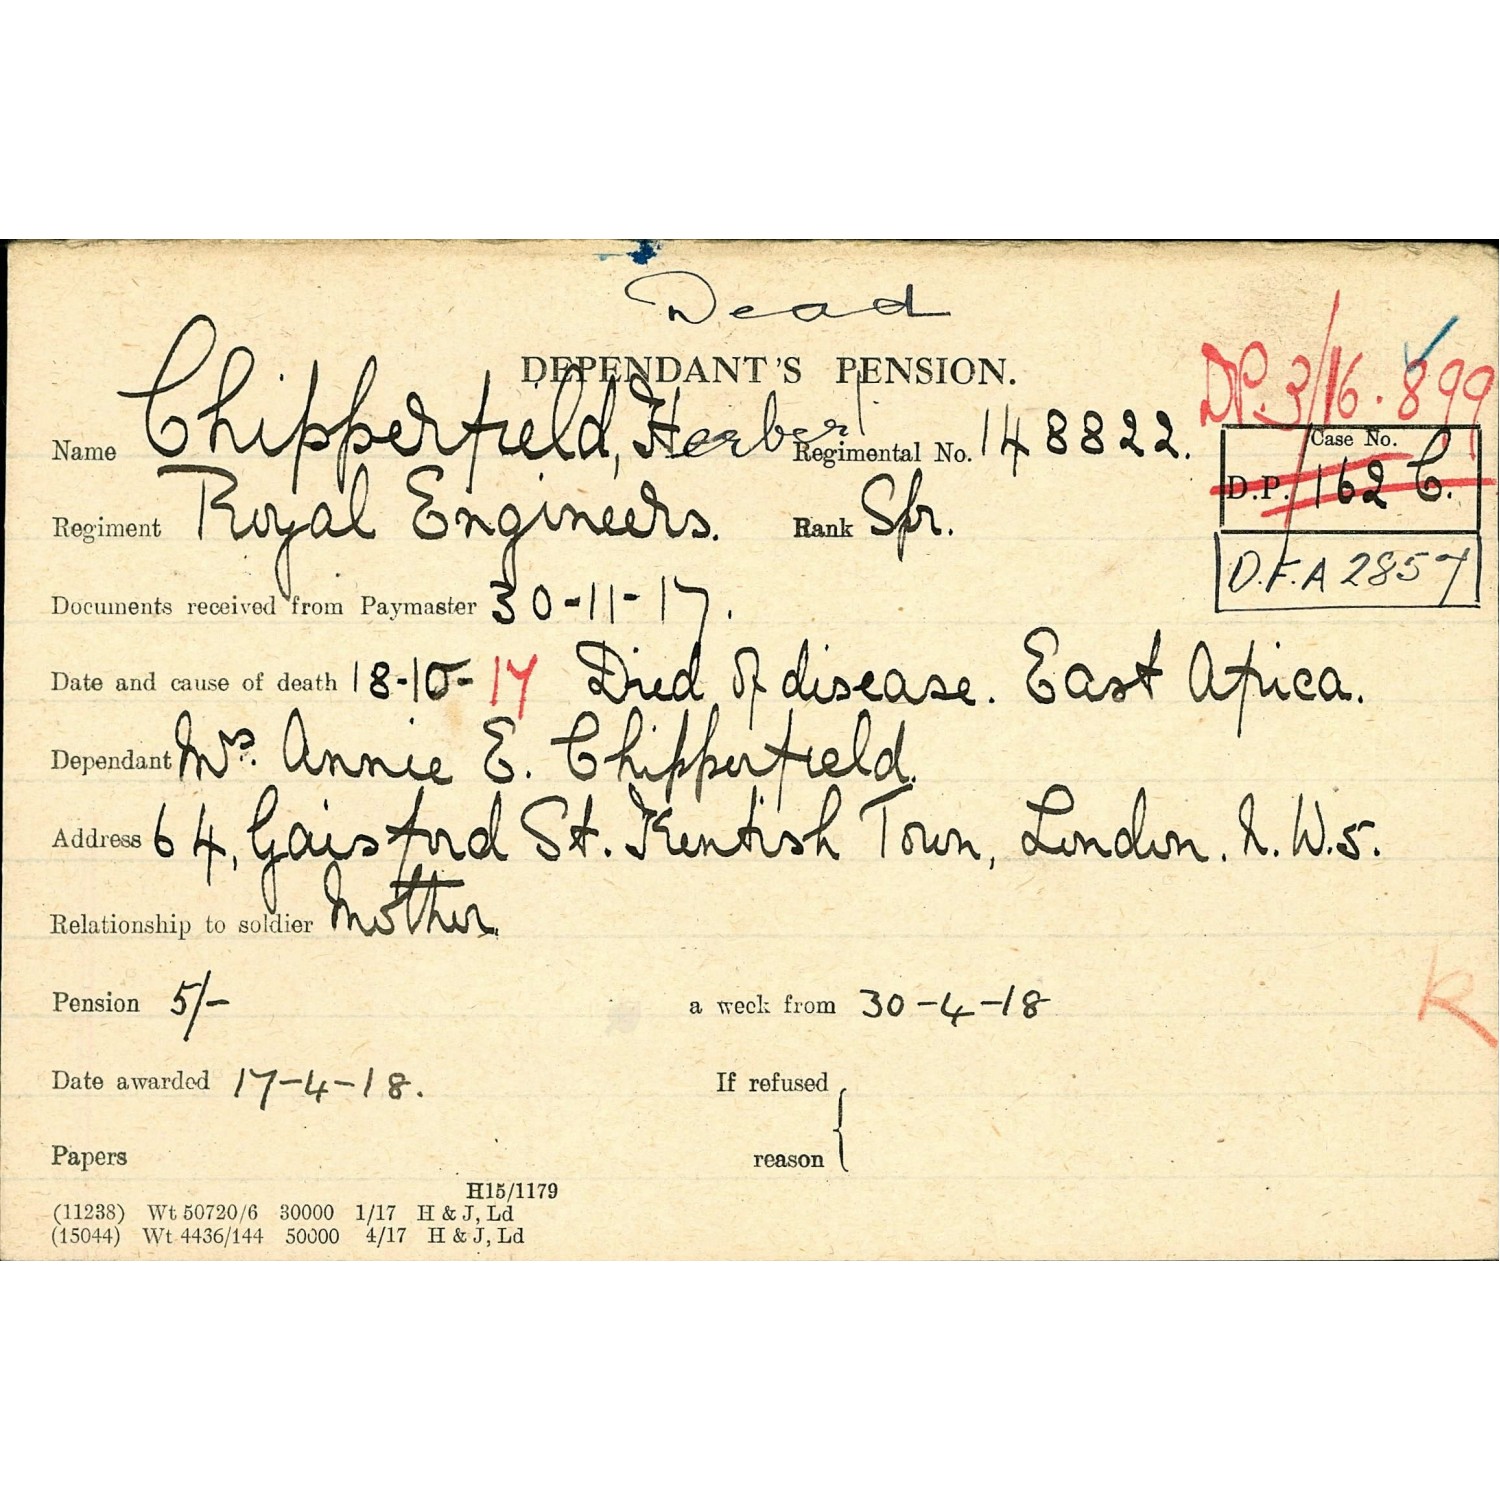 Dead
DEPENDANT'S PENSION.
DP. 3/16.899
Name Chipperfield, Herbert Regimental No. 148822.
Case No.
D.P. 162 C.
Regiment Royal Engineers. Rank Spr.
D.F.A 2857
Documents received from Paymaster 30-11-17.
Date and cause of death 18-10-17 Died of disease. East Africa.
Dependant Mrs. Annie E. Chipperfield.
Address 64, Gaisford St. Kentish Town, London. N.W.5.
Relationship to soldier Mother.
Pension 5/- a week from 30-4-18
R
Date awarded 17-4-18. If refused
Papers reason
H15/1179
(11238) Wt 50720/6 30000 1/17 H & J, Ld
(15044) Wt 4436/144 50000 4/17 H & J, Ld